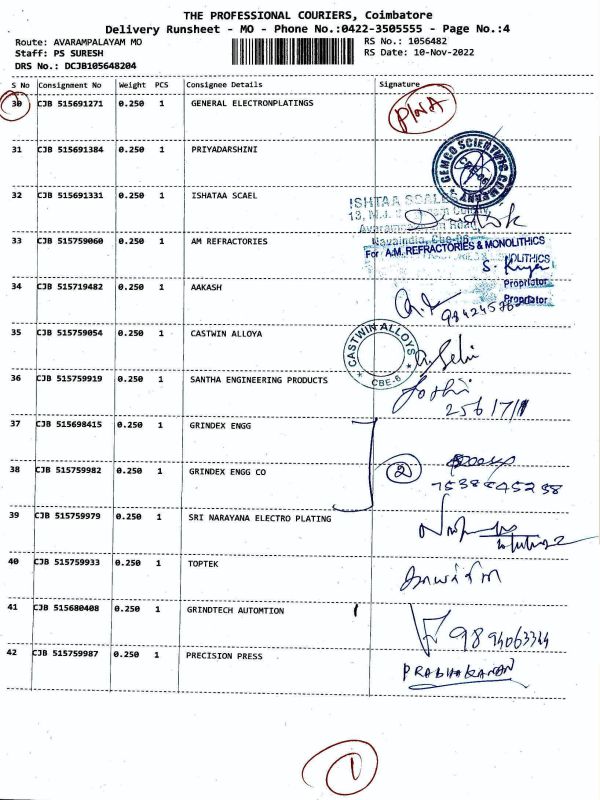 THE PROFESSIONAL COURIERS, Coimbatore
Delivery Runsheet - MO - Phone No.:0422-3505555 - Page No.:4
Route: AVARAMPALAYAM MO
RS No.: 1056482
Staff: PS SURESH
RS Date: 10-Nov-2022
DRS No.: DCJB105648204
S No Consignment No Weight PCS Consignee Details Signature
30 CJB 515691271 0.250 1 GENERAL ELECTRONPLATINGS
31 CJB 515691384 0.250 1 PRIYADARSHINI
GEMCO SCIENTIFIC COMPANY CBE-06
32 CJB 515691331 0.250 1 ISHATAA SCAEL
ISHTAA SCALE
33 CJB 515759060 0.250 1 AM REFRACTORIES
For A.M. REFRACTORIES & MONOLITHICS
Proprietor
34 CJB 515719482 0.250 1 AAKASH
35 CJB 515759054 0.250 1 CASTWIN ALLOYA
CASTWIN ALLOYS CBE-6
36 CJB 515759919 0.250 1 SANTHA ENGINEERING PRODUCTS
37 CJB 515698415 0.250 1 GRINDEX ENGG
38 CJB 515759982 0.250 1 GRINDEX ENGG CO
2
39 CJB 515759979 0.250 1 SRI NARAYANA ELECTRO PLATING
40 CJB 515759933 0.250 1 TOPTEK
41 CJB 515680408 0.250 1 GRINDTECH AUTOMTION
42 CJB 515759987 0.250 1 PRECISION PRESS
PRABHAKARAN
1